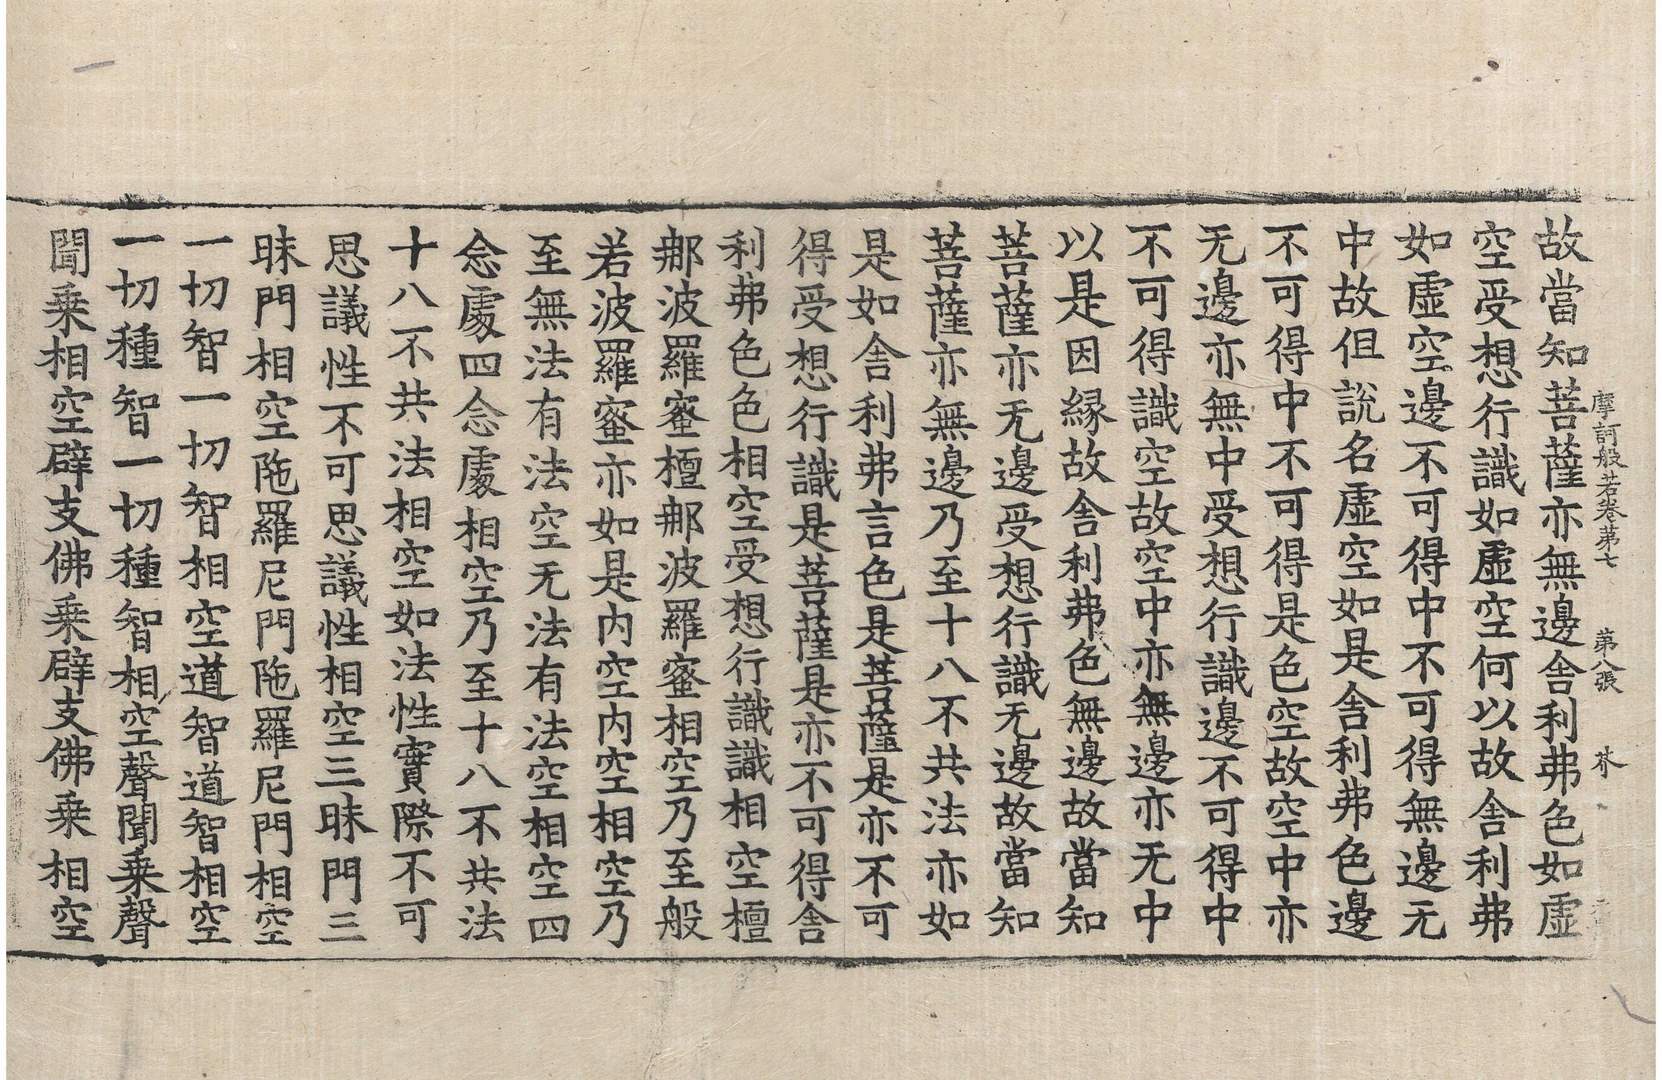 摩訶般若卷第七　第八張
故當知菩薩亦無邊舍利弗色如虛
空受想行識如虛空何以故舍利弗
如虛空邊不可得中不可得無邊无
中故但說名虛空如是舍利弗色邊
不可得中不可得是色空故空中亦
无邊亦無中受想行識邊不可得中
不可得識空故空中亦無邊亦无中
以是因縁故舍利弗色無邊故當知
菩薩亦无邊受想行識无邊故當知
菩薩亦無邊乃至十八不共法亦如
是如舍利弗言色是菩薩是亦不可
得受想行識是菩薩是亦不可得舍
利弗色色相空受想行識識相空檀
那波羅蜜檀那波羅蜜相空乃至般
若波羅蜜亦如是内空内空相空乃
至無法有法空无法有法空相空四
念處四念處相空乃至十八不共法
十八不共法相空如法性實際不可
思議性不可思議性相空三昧門三
昧門相空陁羅尼門陁羅尼門相空
一切智一切智相空道智道智相空
一切種智一切種智相空聲聞乗聲
聞乗相空辟支佛乗辟支佛乗相空